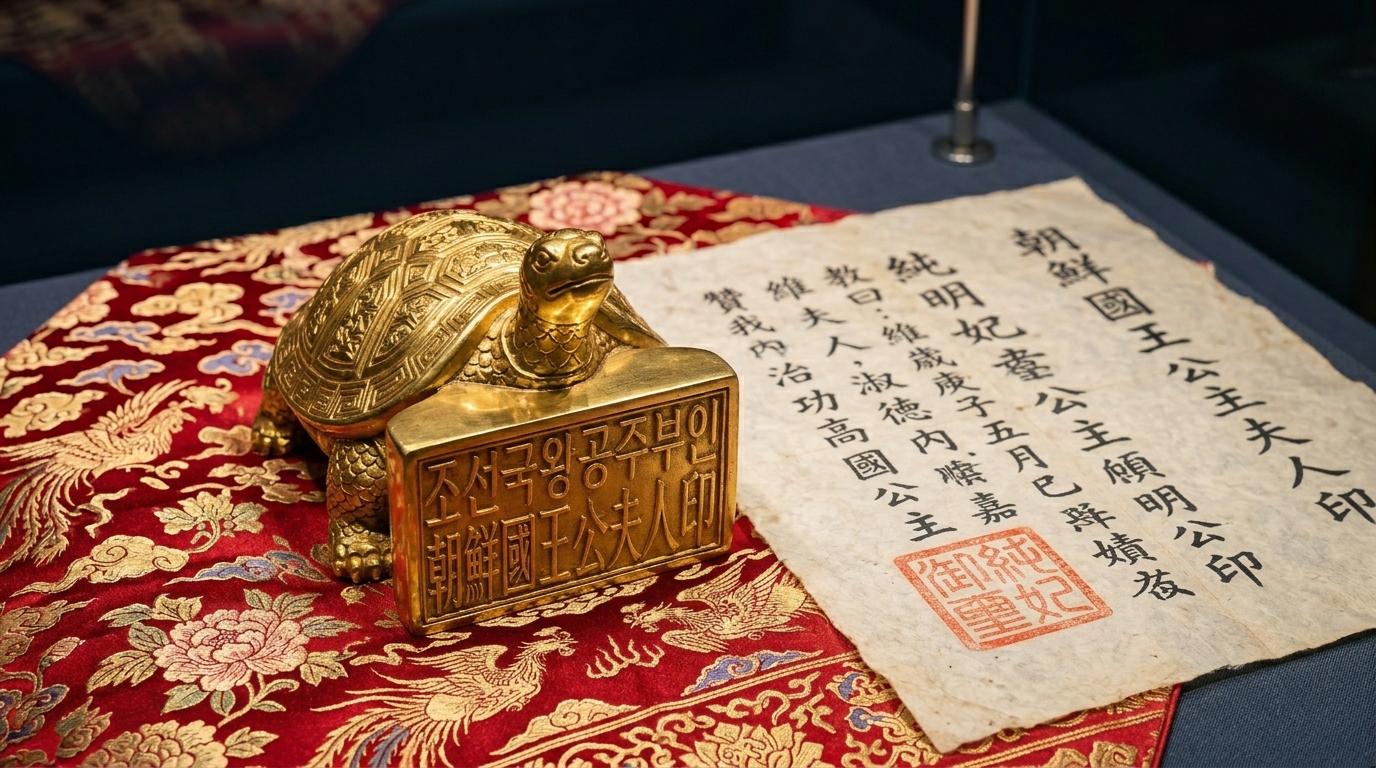 조선국왕공주부인
朝鮮國王公夫人印
朝鮮國王公主夫人印
純明妃公主明公印
教曰：維歳庚子五月巳
維夫人，淑德内嘉
贊我内治功高國公主
純妃
御